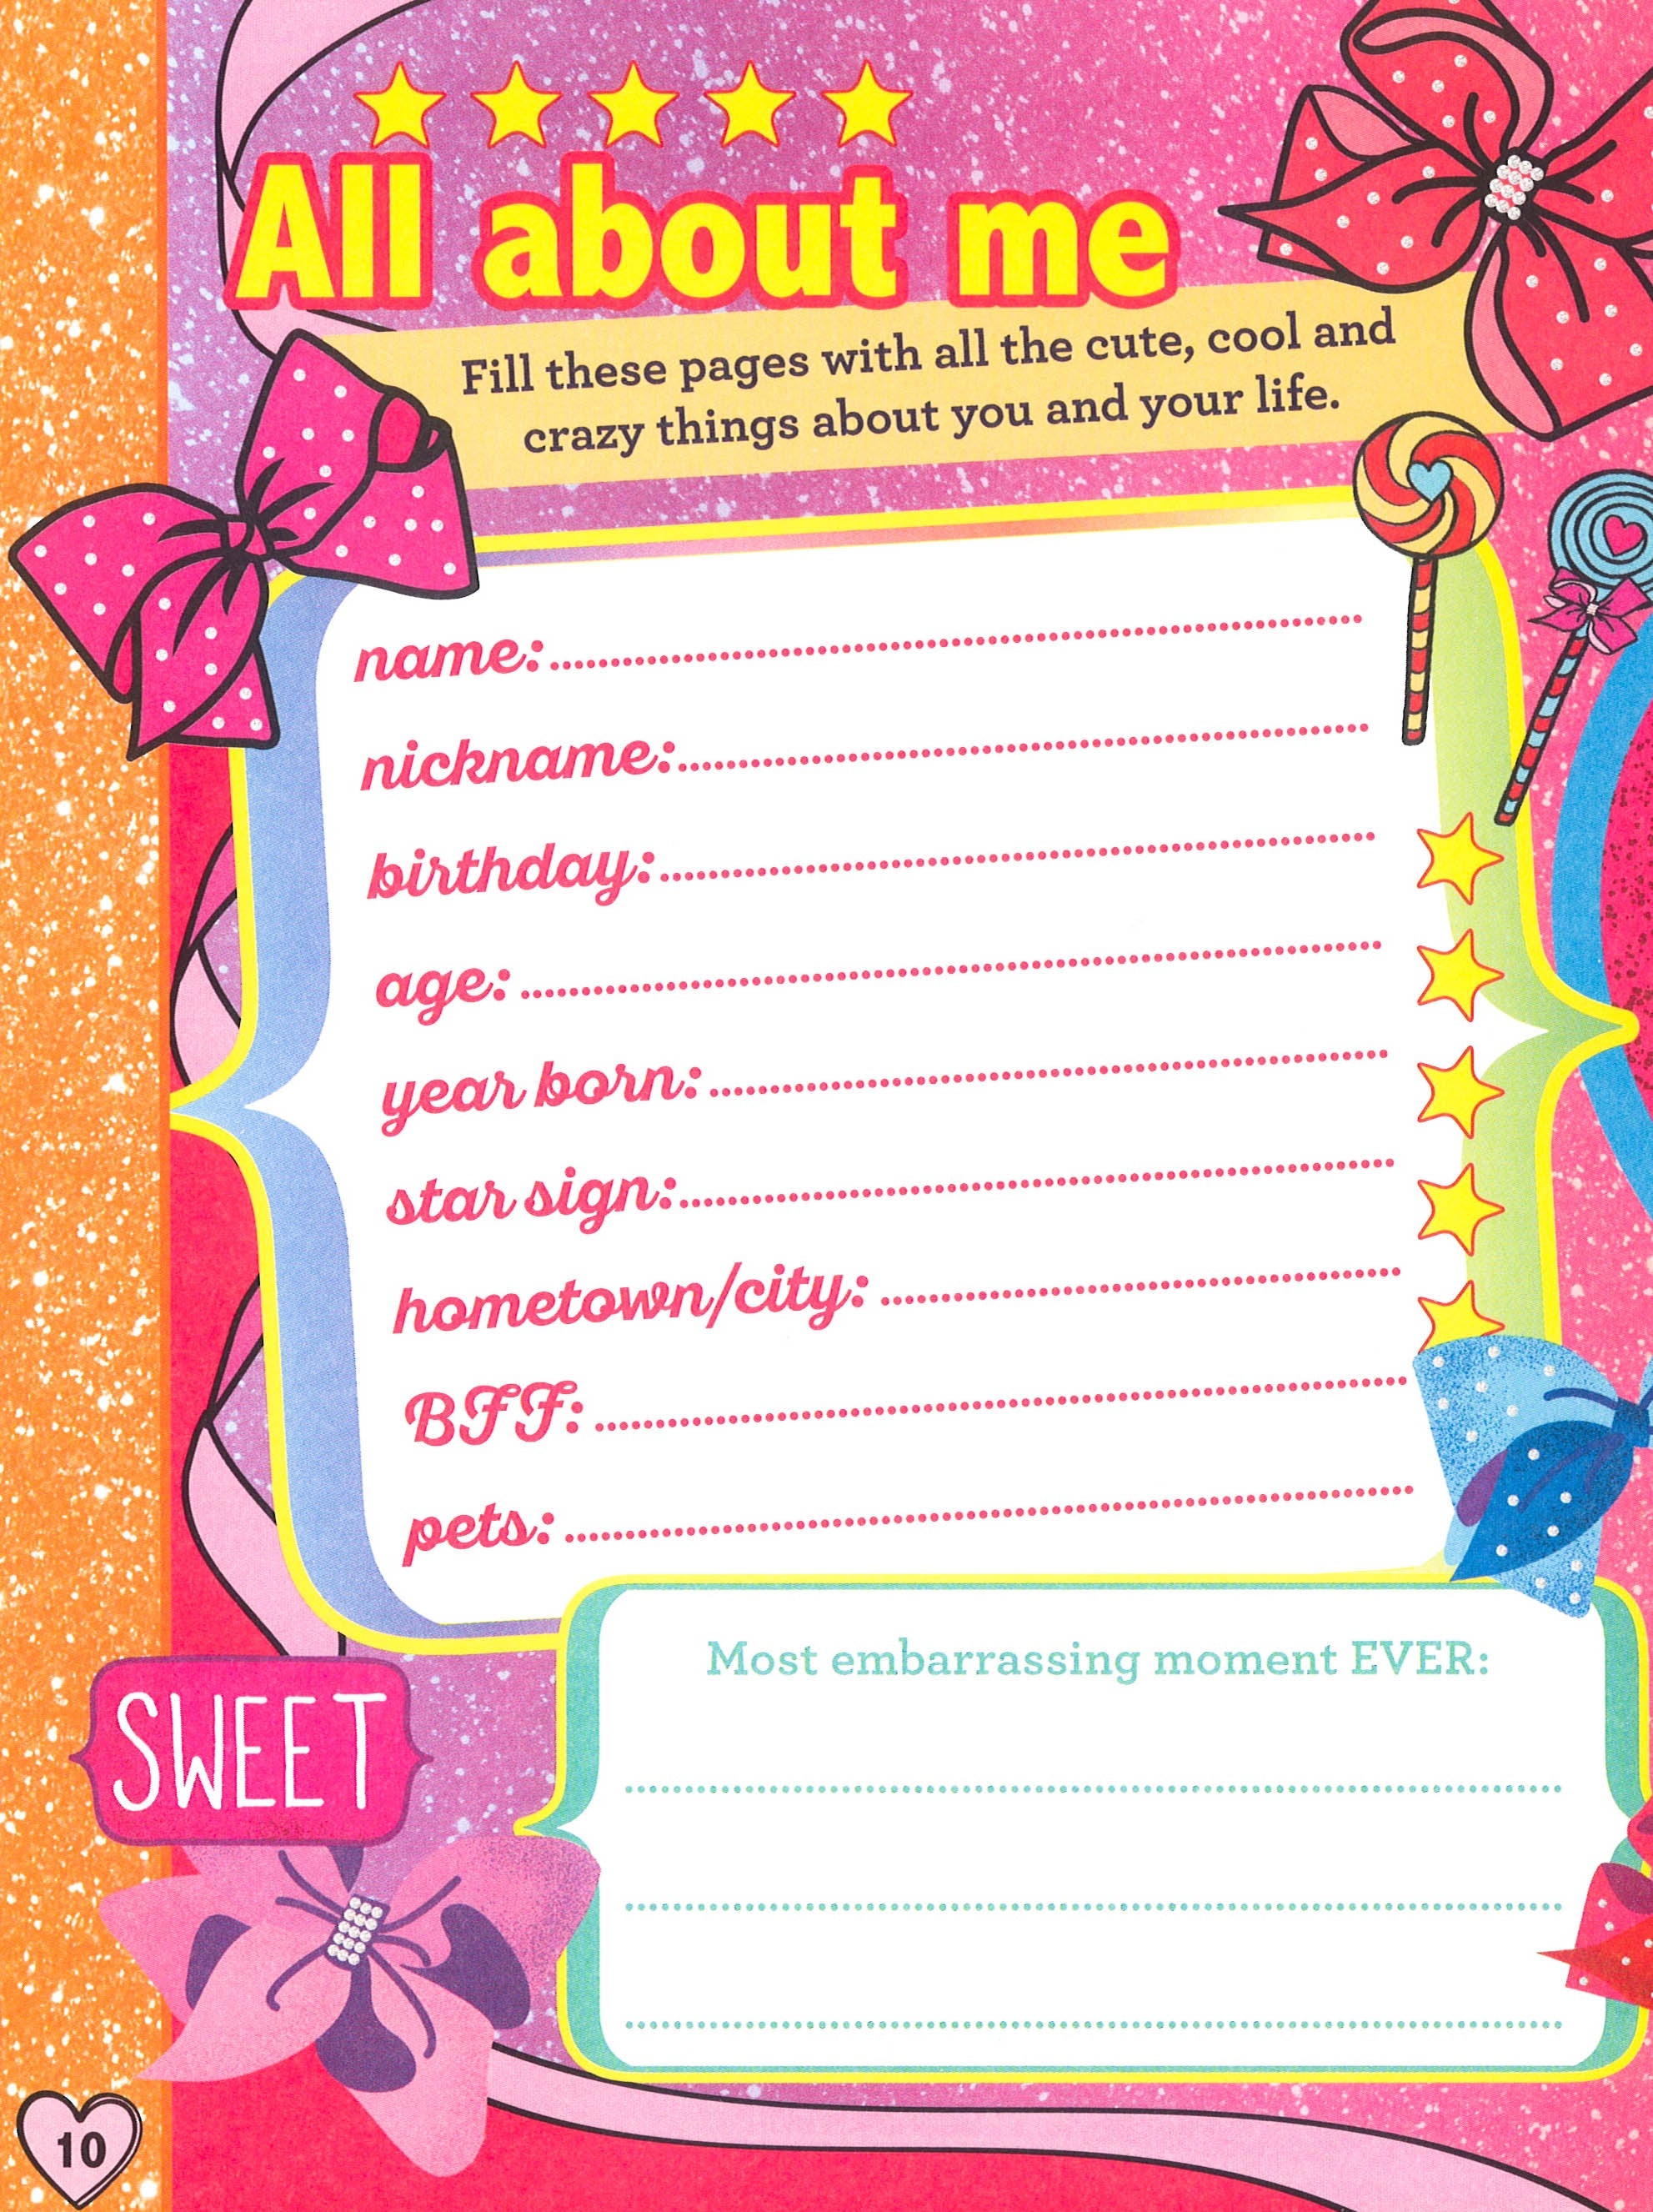 All about me
Fill these pages with all the cute, cool and
crazy things about you and your life.
name:
nickname:
birthday:
age:
year born:
star sign:
hometown/city:
BFF:
pets:
Most embarrassing moment EVER:
SWEET
10